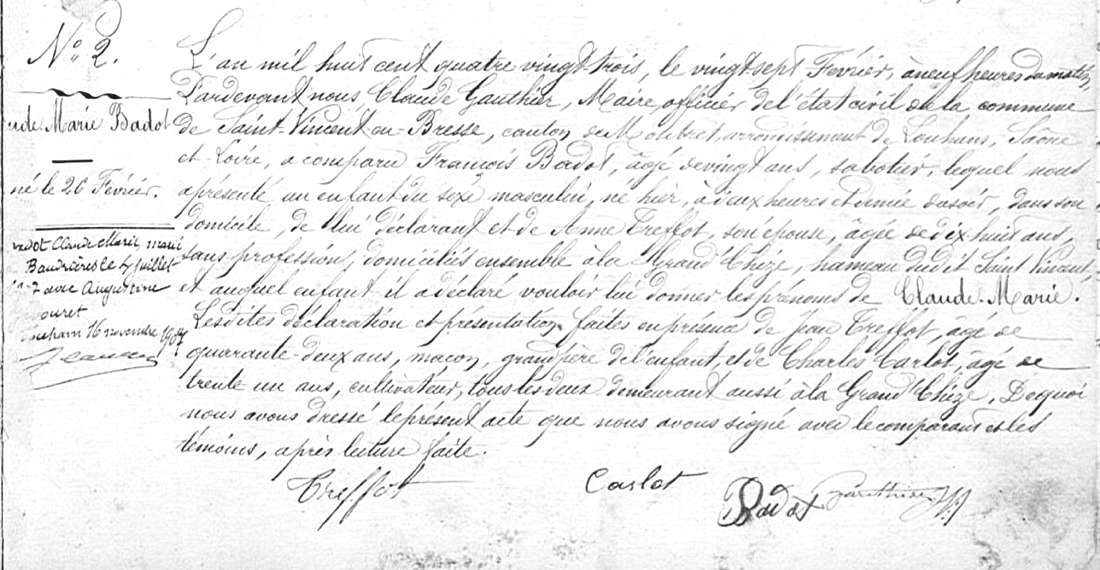 N° 2.
ude Marie Badot
né le 26 Février.
Badot Claude Marie marié
Baudrières le 4 juillet
avec Augustine
ouret
16 novembre 1907
L'an mil huit cent quatre vingt-trois, le vingt-sept Février, à neuf heures du matin,
Pardevant nous, Claude Gauthier, Maire, officier de l'état civil de la commune
de Saint-Vincent-en-Bresse, canton de Montret, arrondissement de Louhans, Saône
et-Loire, a comparu François Badot, âgé de vingt ans, sabotier, lequel nous
a présenté un enfant du sexe masculin, né hier, à deux heures et demie du soir, dans son
domicile, de lui déclarant et de Anne Treffot, son épouse, âgée de dix huit ans,
sans profession, domiciliés ensemble à la Grand'Chèze, hameau dudit Saint Vincent,
et auquel enfant il a déclaré vouloir lui donner les prénoms de Claude-Marie.
Lesdites déclaration et présentation faites en présence de Jean Treffot, âgé de
quarante-deux ans, maçon, grand père de l'enfant, et de Charles Carlot, âgé de
trente un ans, cultivateur, tous les deux demeurant aussi à la Grand'Chèze. De quoi
nous avons dressé le présent acte que nous avons signé avec le comparant et les
témoins, après lecture faite.
Treffot
Carlot
Badot
Gauthier